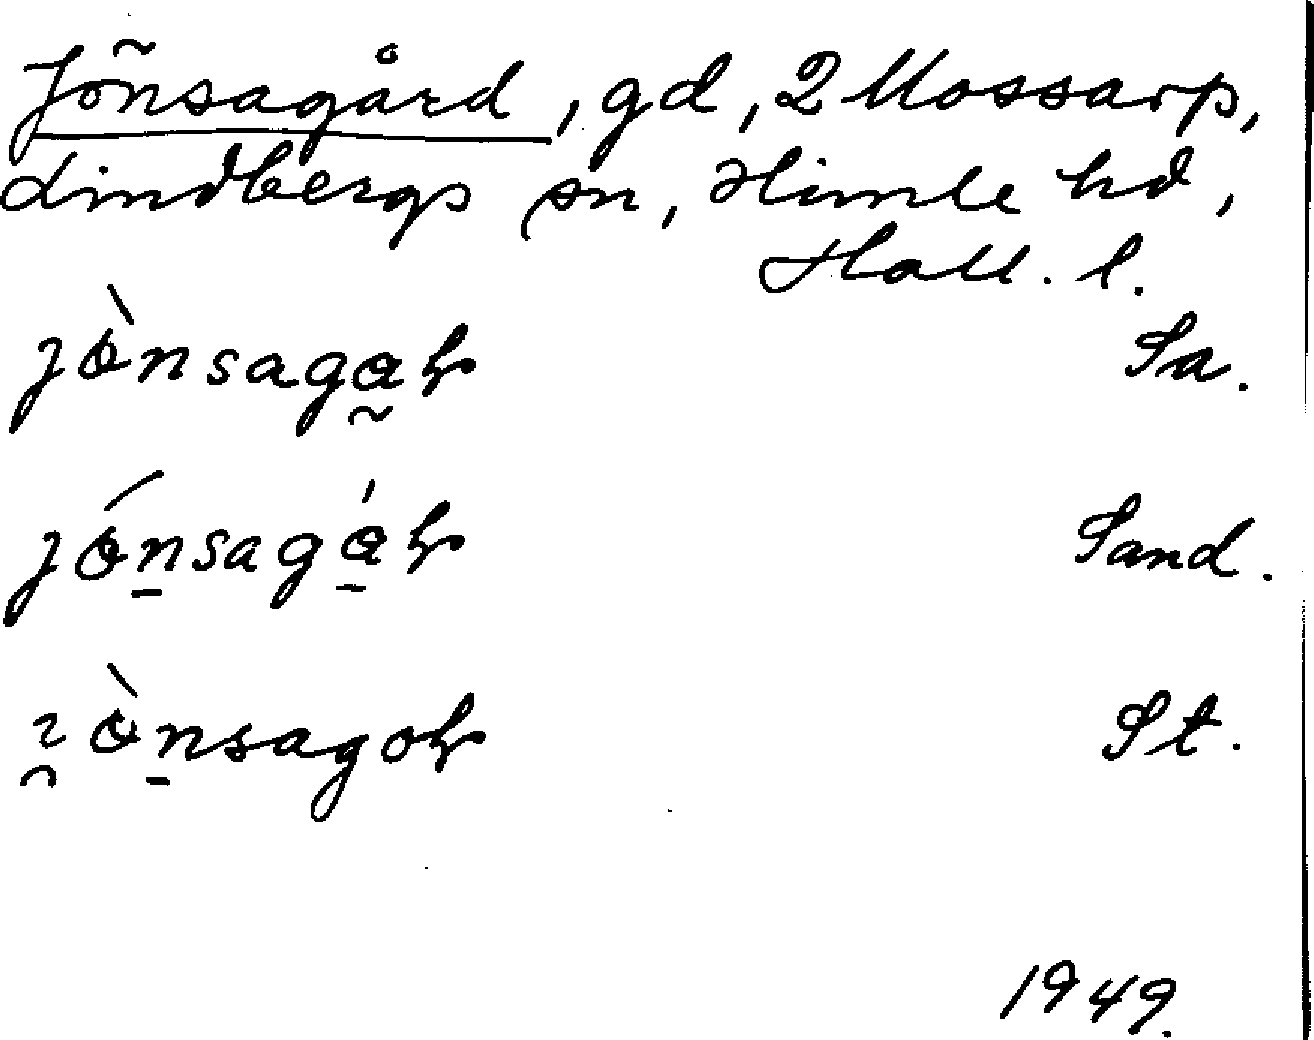 Jönsagård, gd, 2 Mossarp,
Lindbergs sn, Himle hd,
Hall. l.
jɵ̀nsaga̰ Sa.
jɵ́n̠sagá̠ Sand.
ɵ̀n̠sago St.
1949.